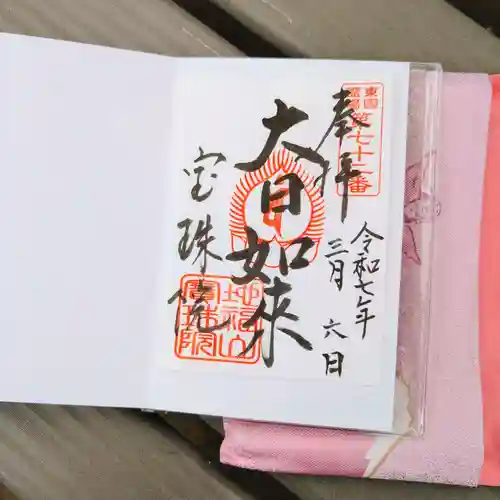 東国
霊場
第七十三番
奉拝
令和七年
三月六日
大日如来
宝珠院